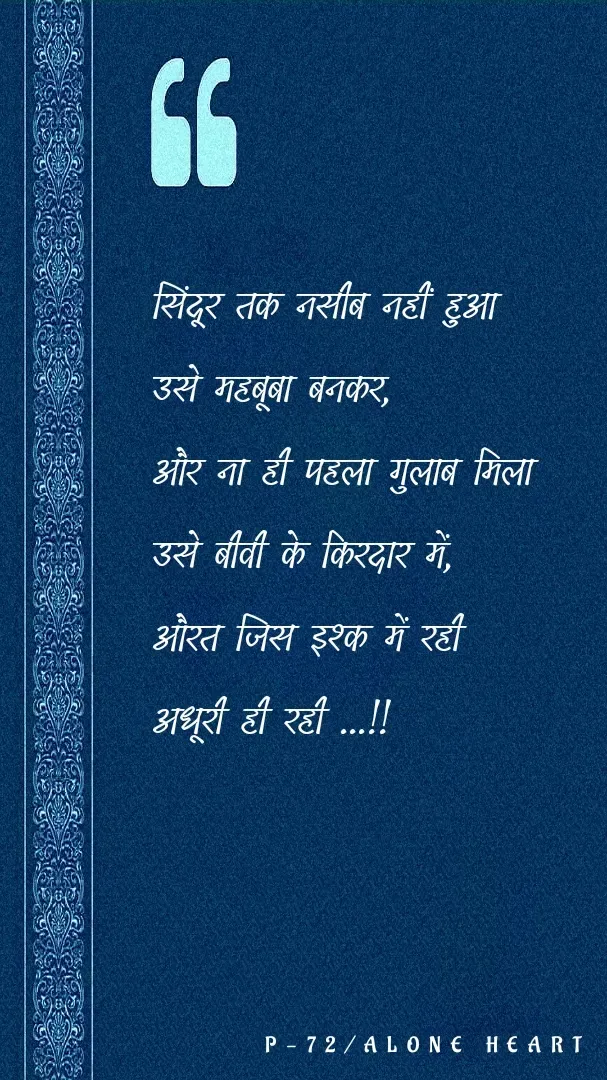 सिंदूर तक नसीब नहीं हुआ
उसे महबूबा बनकर,
और ना ही पहला गुलाब मिला
उसे बीवी के किरदार में,
औरत जिस इश्क में रही
अधूरी ही रही ...!!
P-72/ALONE HEART